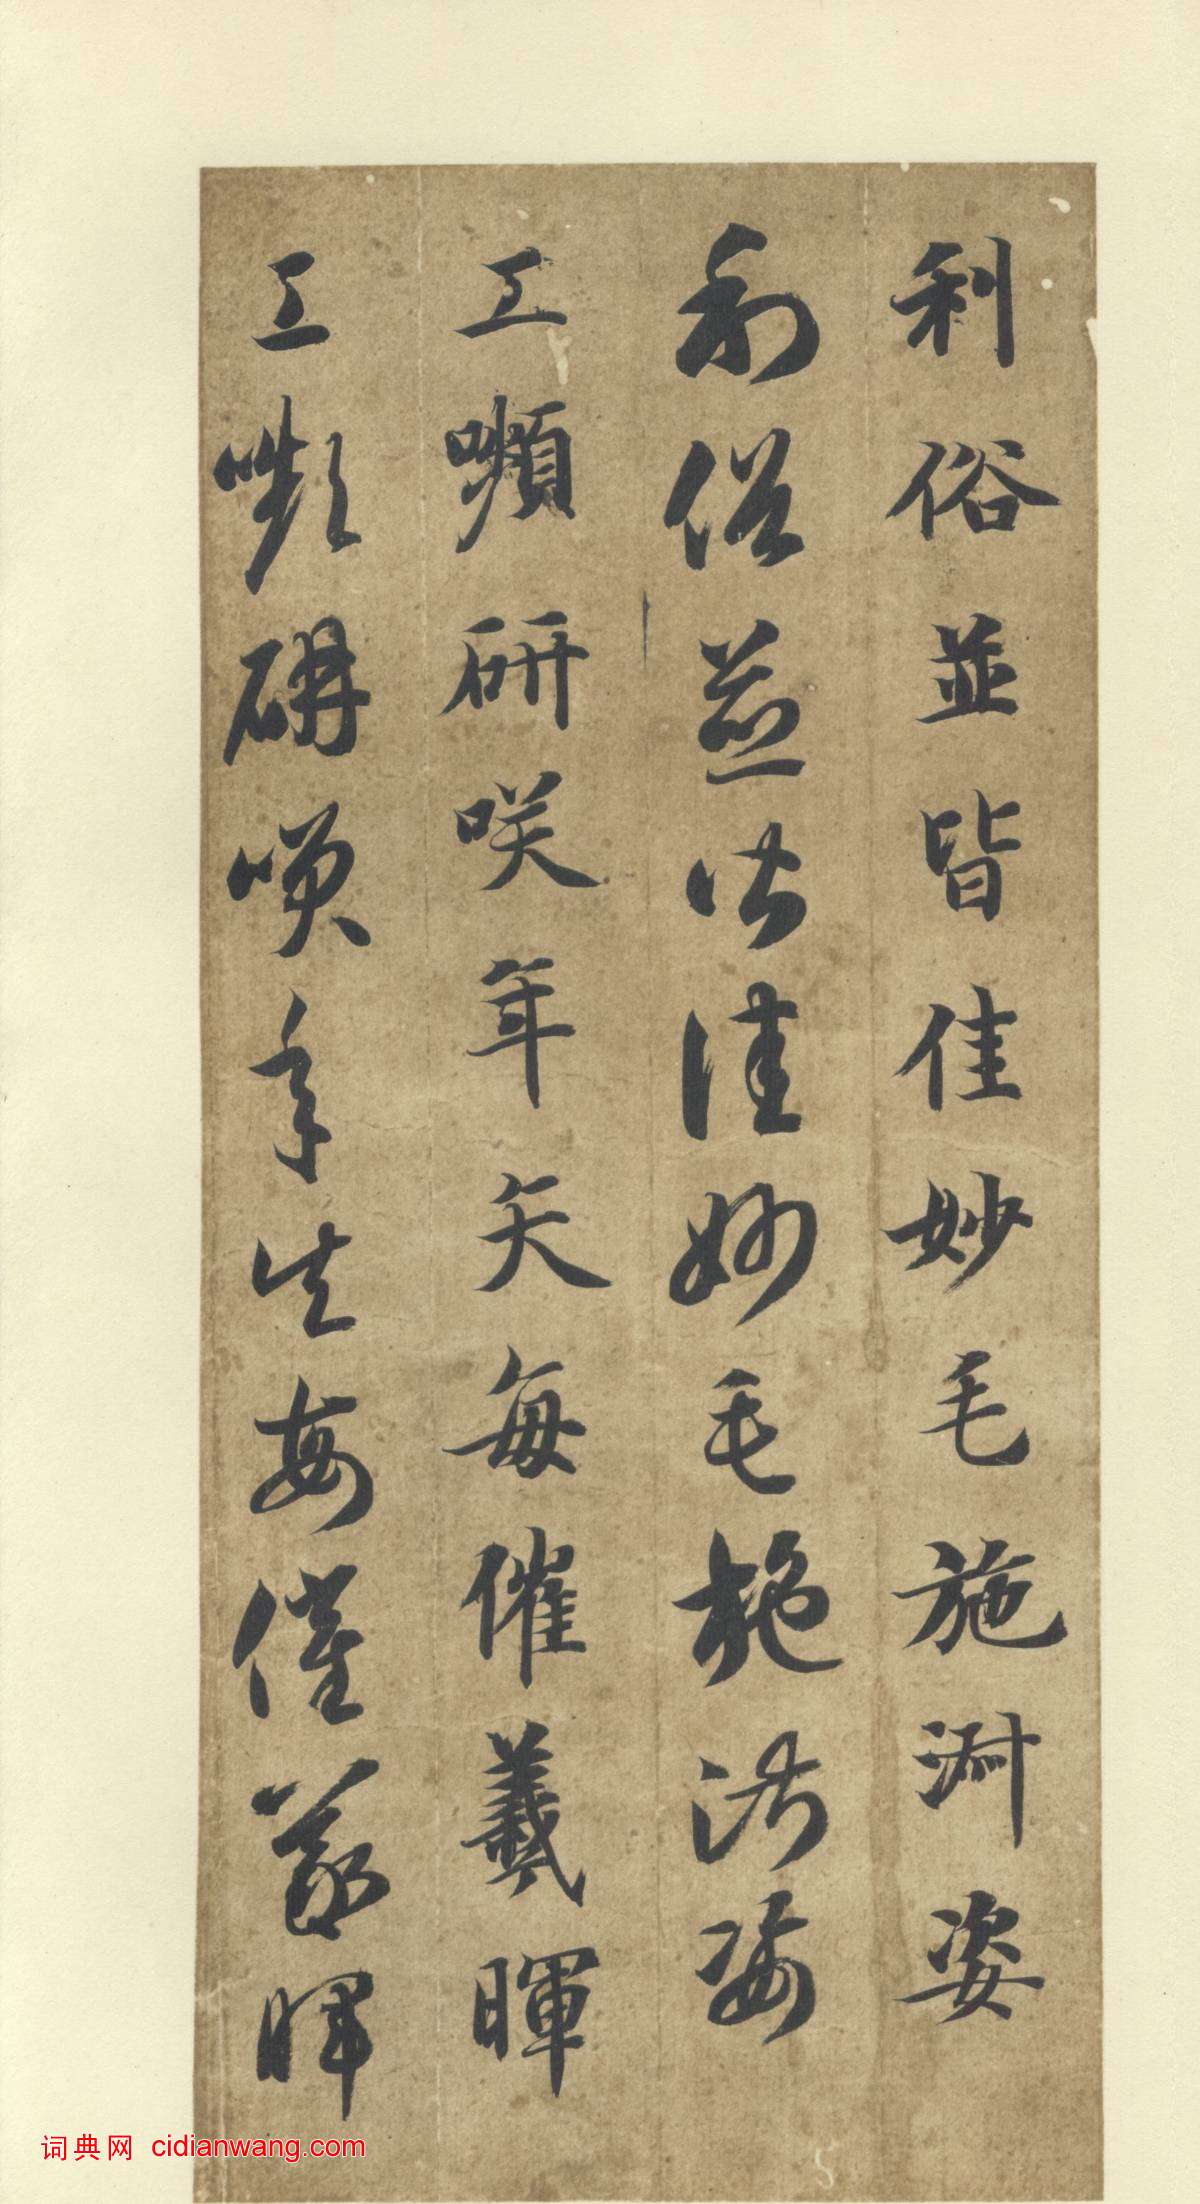 利俗並皆佳妙毛施淑姿
利俗並皆佳妙毛施淑姿
工嚬研咲年矢每催羲暉
工嚬研笑年矢每催羲暉
词典网 cidianwang.com